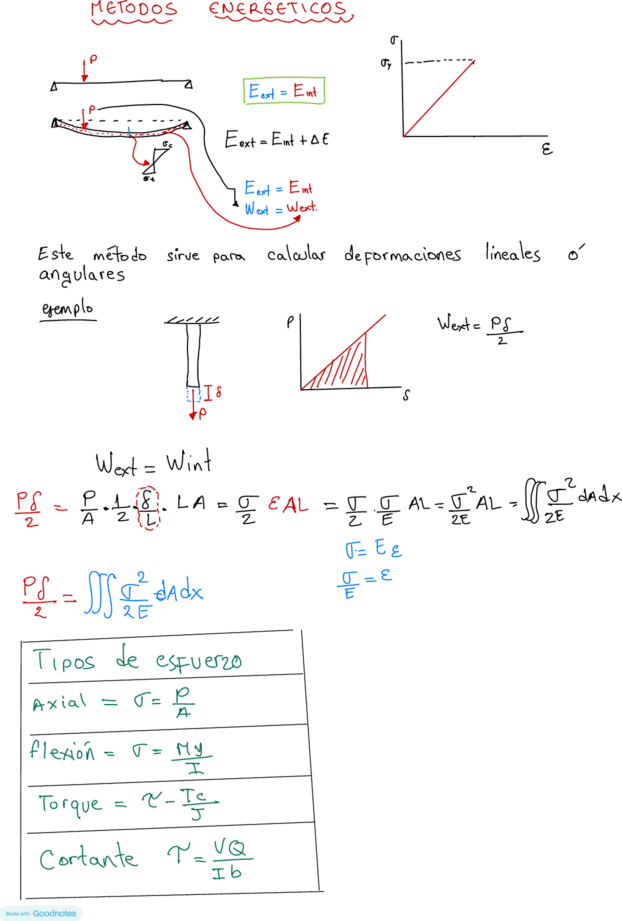 METODOS ENERGETICOS
P
P
σc
σt
E_ext = E_int
E_ext = E_int + ΔE
E_ext = E_int
W_ext = W_ext.
σ
σy
ε
Este método sirve para calcular deformaciones lineales ó
angulares
ejemplo
δ
P
P
δ
W_ext = Pδ/2
W_ext = W_int
Pδ/2 = P/A · 1/2 · δ/L · LA = σ/2 εAL = σ/2 · σ/E AL = σ²/2E AL = ∭ σ²/2E dAdx
σ = Eε
σ/E = ε
Pδ/2 = ∭ σ²/2E dAdx
Tipos de esfuerzo
Axial = σ = P/A
flexión = σ = My/I
Torque = τ - Tc/J
Cortante τ = VQ/Ib
Made with Goodnotes